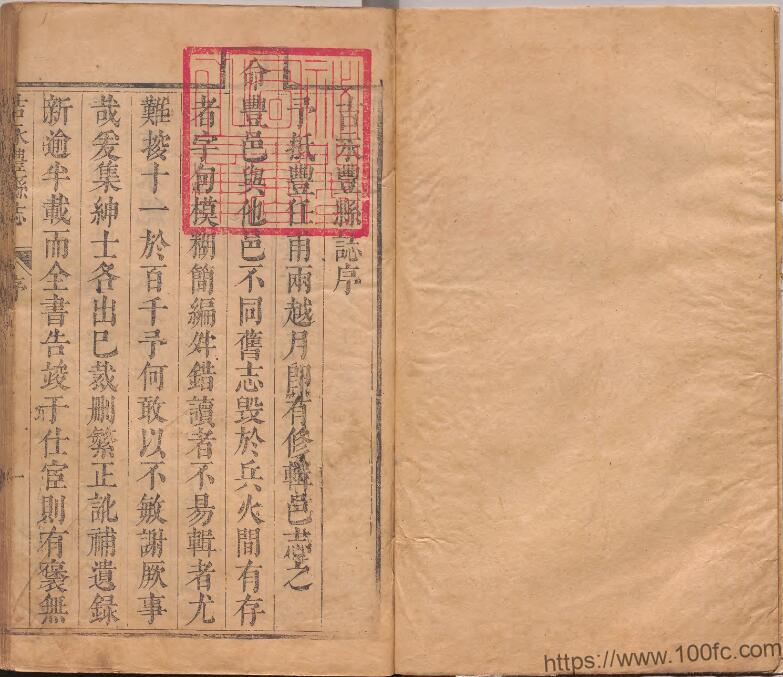 吉永豐縣誌序
予抵豐任甫兩越月即有修輯邑志之
命豐邑與他邑不同舊志毀於兵火間有存
者字句模糊簡編舛錯讀者不易輯者尤
難挍十一於百千予何敢以不敏謝厥事
哉爰集紳士各出已裁刪繁正訛補遺錄
新逾半載而全書告竣于仕宦則有褒無
吉永豐縣志
序
一
https://www.100fc.com